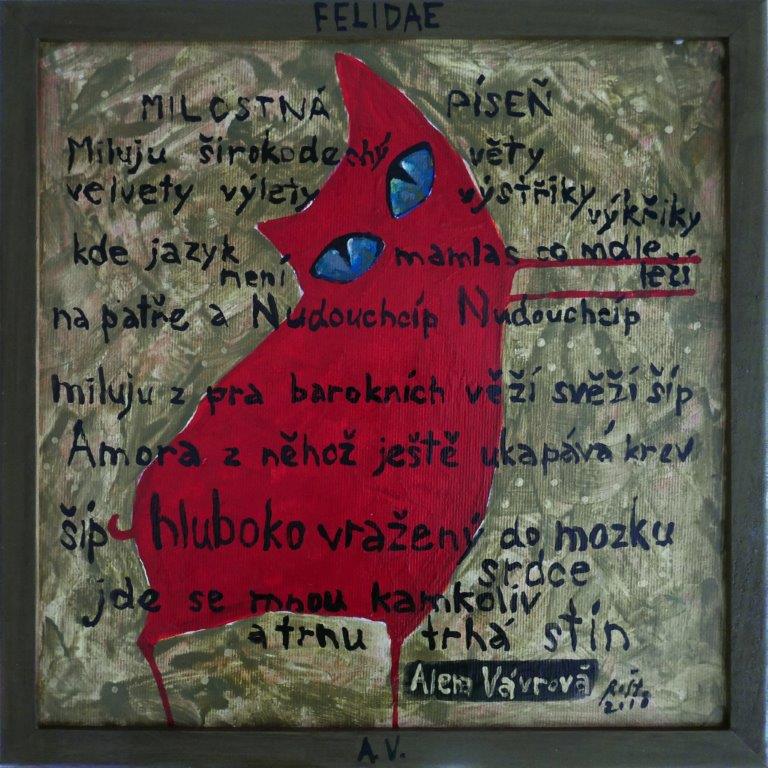 FELIDAE
MILOSTNÁ PÍSEŇ
Miluju širokodechý věty
velvety výlety výstřiky výkřiky
kde jazyk není mamlas co mdle leží
na patře a Nudouchcíp Nudouchcíp
miluju z pra barokních věží svěží šíp
Amora z něhož ještě ukapává krev
šíp hluboko vražený do mozku
srdce
jde se mnou kamkoliv
a trnu trhá stín
Alena Vávrová
A.V.